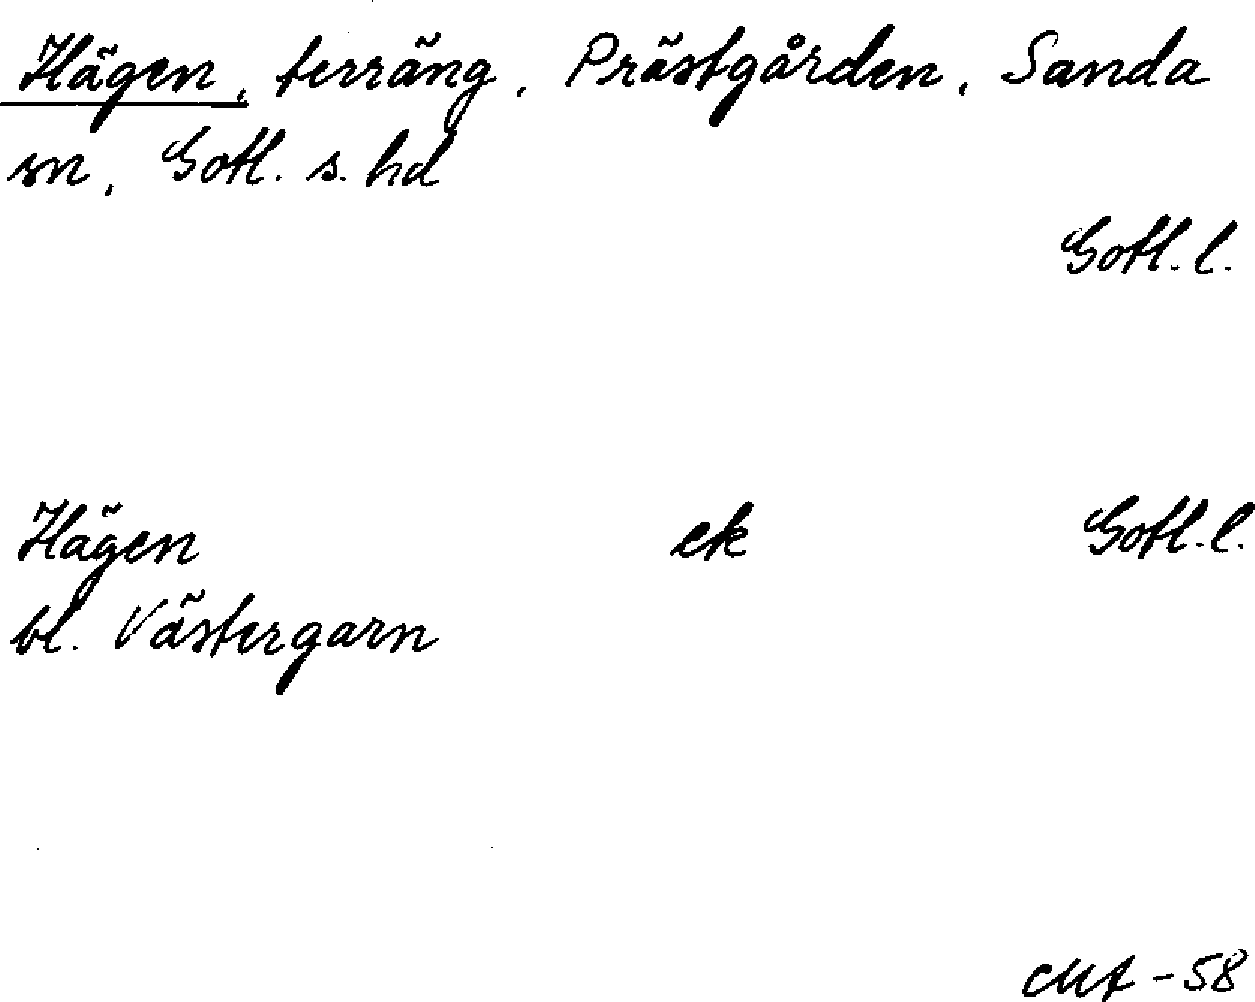 Hägen, terräng, Prästgården, Sanda
sn, Gotl. s. hd
Gotl. l.
Hägen ek Gotl. l.
bl. Västergarn
-58